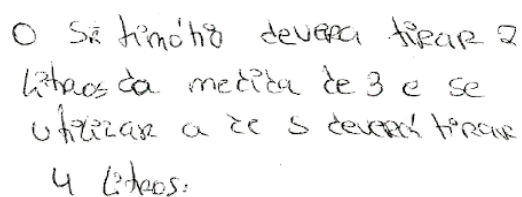 O Sr timótio devera tirar 2
Litros da medida de 3 e se
utilizar a de 5 deverá tirar
4 Litros.